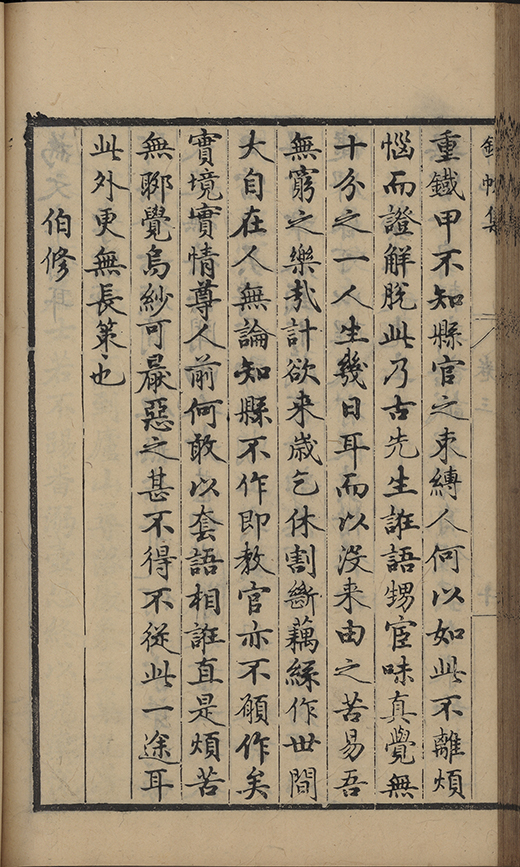 錦帆集
卷三
十
重鐵甲不知縣官之束縛人何以如此不離煩
惱而證解脫此乃古先生誑語甥宦味真覺無
十分之一人生幾日耳而以沒来由之苦易吾
無窮之樂㢤計欲来歲乞休割斷藕絲作世間
大自在人無論知縣不作即教官亦不願作矣
實境實情尊人前何敢以套語相誑直是煩苦
無聊覺烏紗可厭惡之甚不得不從此一途耳
此外更無長策也
伯修